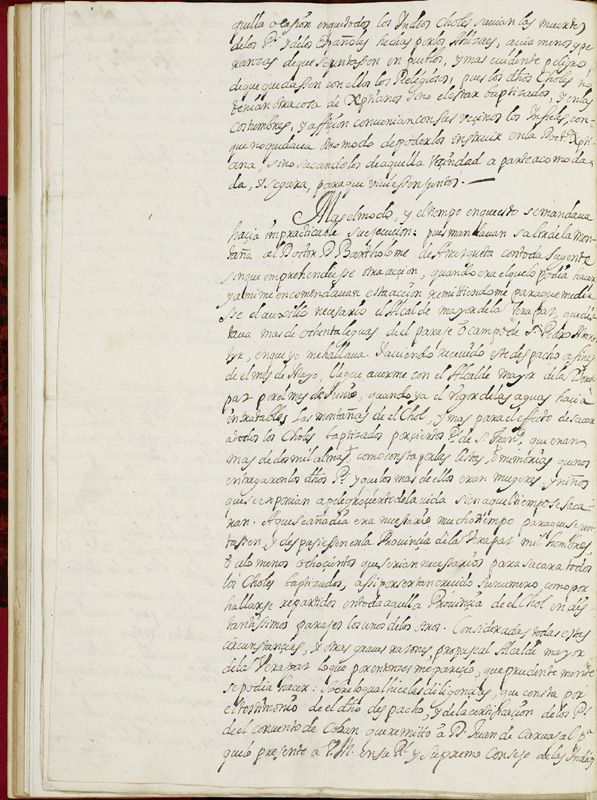 quella ocasion en que todos los Indios Choles savian las muertes
de los P.s y de los Españoles hechas por los Ahizaes, avia menos espe
ranzas de que se juntassen en pueblos, y mas evidente peligro
de que quedassen con ellos los Religiosos, pues los dhos Choles no
tenian otra cosa de Xptianos sino el estar baptizados, y en las
costumbres, y affision convenian con sus vezinos los Infieles, con
que no quedava otro modo de poderlos instruir en la Doct.a Xpti
ana, sino sacandolos de aquella vezindad a parte acomoda
da, y segura, para que viviessen juntos.
Mas el modo, y el tiempo en que esto se mandava
hazia impracticable su execucion: pues mandavan salir de la Mon
taña al Doctor D. Bartholome de Amesqueta con toda su gente
sin que emprehendiesse otra accion, quando era el que lo podia hazer
y a mi me encomendavan esta accion remittiendome para que me die
sse el auxilio necesario el Alcalde mayor de la Verapaz, que dis
tava mas de ochenta leguas de el paraje o campo de S. Pedro Mar
tyr, en que yo me hallava. Y aviendo recevido este despacho a fines
de el mes de Mayo, llegue a verme con el Alcalde mayor de la Vera
paz por el mes de Junio, quando ya el rigor de las aguas hazia
intratables las montañas de el Chol, y mas para el effecto de sacar
a todos los Choles baptizados por ciertos P.s de S. Fran.co, que eran
mas de dos mil almas, como consta por las listas, o memorias que nos
entregaron los dhos P.s y aun los mas de ellos eran mugeres, y niños
que se exponian a peligro cierto de la vida si en aquel tiempo se saca
ran. A que se añadia era necesario mucho tiempo para que se jun
tassen, y despassiessen en la Provincia de la Verapaz mil hombres
o a lo menos ochocientos que serian necessarios para sacar a todos
los Choles baptizados, assi por ser tan crecido su numero, como por
hallarse repartidos en toda aquella Provincia de el Chol en dis
tantissimos parages los unos de los otros. Consideradas todas estas
circunstancias, y otras graves razones propuse al Alcalde mayor
de la Verapaz lo que por entonces me parecio, que prudentemente
se podia hacer: sobre lo qual hice las diligencias, que consta por
el testimonio de el dho despacho, y de la certificacion de los P.s
de el convento de Coban que remitto a D. Juan de Carvajal p.a
que lo presente a V.M. en su R.l y Supremo Consejo de las Indias